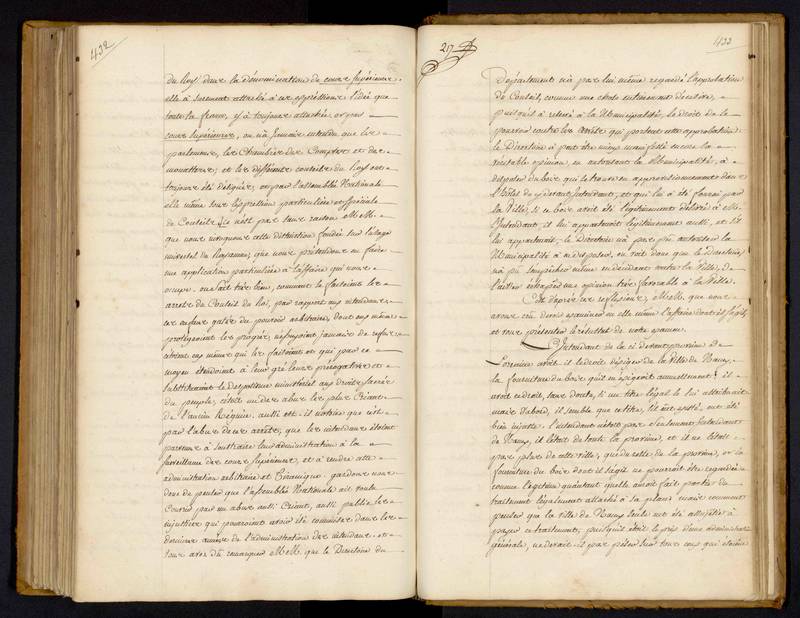 432
du Roy dans la dénomination de cours supérieures.
elle a surement attaché à ces expressions l'idée que
toute la france, y a toujours attachée, or par
cours supérieures, on n'a jamais entendu que les
parlemens, les Chambres des Comptes et des
monnoies; et les différents conseils du Roy ont
toujours été désignés, par l'assemblée Nationale
elle même sous l'expression particulière et spéciale
de Conseils, Ce n'est pas sans raison MM.
que nous invoquons cette distinction fondée sur l'usage
universel du Royaume, que nous prétendons en faire
une application particulière à l'affaire qui nous
occupe. on sait très bien, comment se faisoient les
arrets du Conseil du Roi, par rapport aux intendans,
ces enfans gatés du pouvoir arbitraire, dont eux même
protégeoient les progrès, n'éprouvoient jamais de refus,
c'étoient eux mêmes qui les faisoient et qui par ce
moyen étendoient à leur gré leurs prérogatives et
substituoient le Despotisme ministériel aux droits sacrés
du peuple, c'étoit un des abus les plus Criants
de l'ancien Régime, aussi est-il notoire que c'est
par l'abus de ces arrets, que les intendans étoient
parvenus à soustraire leur administration à la
surveillance des cours supérieures, et à rendre cette
administration arbitraire et Tirannique. gardons nous
donc de penser que l'assemblée Nationale ait voulu
Couvrir par un abus aussi Criant, aussi public les
injustices qui pourroient avoir été commises dans les
dernières années de l'administration des intendans. et
vous avés du remarquer MM. que le Directoire du
217
433
Département n'a pas lui même regardé l'approbation
du Conseil, comme une chose entièrement décisive,
puisqu'il a réservé à la Municipalité, le droit de se
pourvoir contre les arrêts qui portent cette approbation
le Directoire a peut être mieux manifesté encore la
véritable opinion, en autorisant la Municipalité, à
disposer du bois qui se trouve en approvisionnement dans
l'hôtel du cydevant Intendant, et qui lui a été fourni par
la Ville, si ce bois avoit été légitimement délivré à M.
l'Intendant il lui appartenoit légitimement aussi, et s'il
lui appartenoit, le Directoire n'a pas pu autoriser la
Municipalité à en disposer, on voit donc que le Directoire
n'a pu s'empêcher même en décidant contre la Ville, de
laisser échapper une opinion très favorable à la Ville.
C'est d'après ces reflexions, MM. que nous
avons cru devoir examiner en elle même l'affaire dont il s'agit,
et vous présenter le résultat de notre examen.
L'Intendant de la ci devant province de
Lorraine avoit-il le droit d'éxiger de la Ville de Nancy,
la fourniture du bois qu'il en exigeoit annuellement? il
avoit ce droit, sans doute, si un titre légal le lui attribuoit
mais d'abord, il semble que ce titre, s'il eut existé, eut été
bien injuste. l'intendant n'étoit pas seulement Intendant
de Nancy, il l'étoit de toute la province, et il ne l'étoit
pas plus de cette ville, que du reste de la province, or la
fourniture du bois dont il s'agit ne pourroit être regardée
comme légitime qu'autant qu'elle auroit fait partie du
traitement légalement attaché à la place mais comment
penser que la ville de Nancy seule eut été assujetie à
payer ce traitement, puisqu'il étoit le prix d'une administration
générale, ne devoit-il pas peser sur tous ceux qui étoient